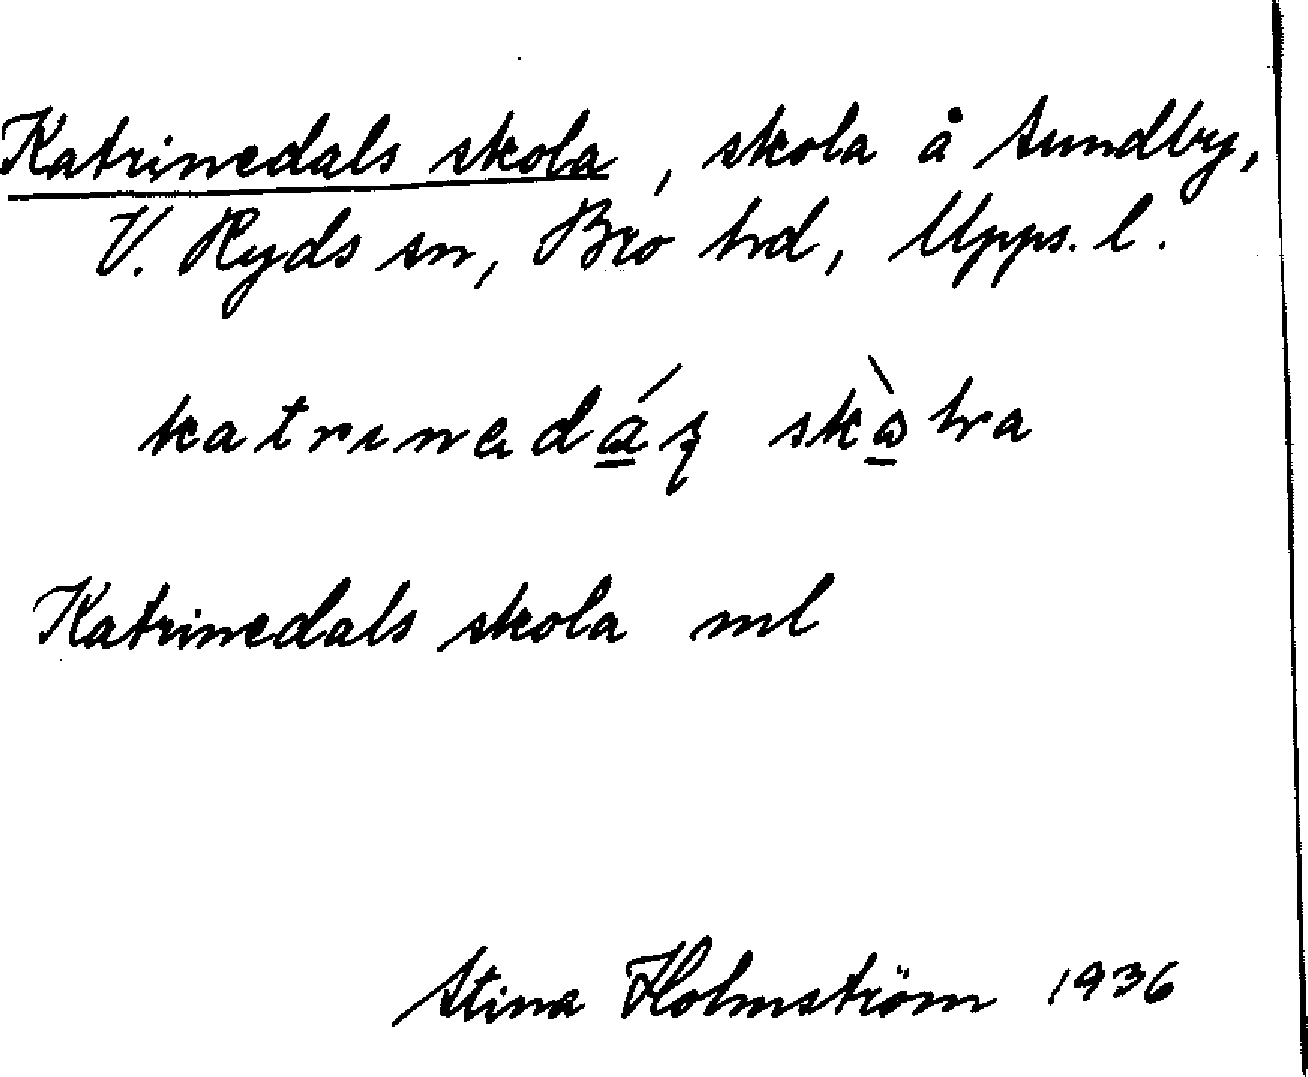 Katrinedals skola, skola å Sundby,
V. Ryds sn, Bro hd, Upps. l.
Katrinedals skola ml
Stina Holmström 1936